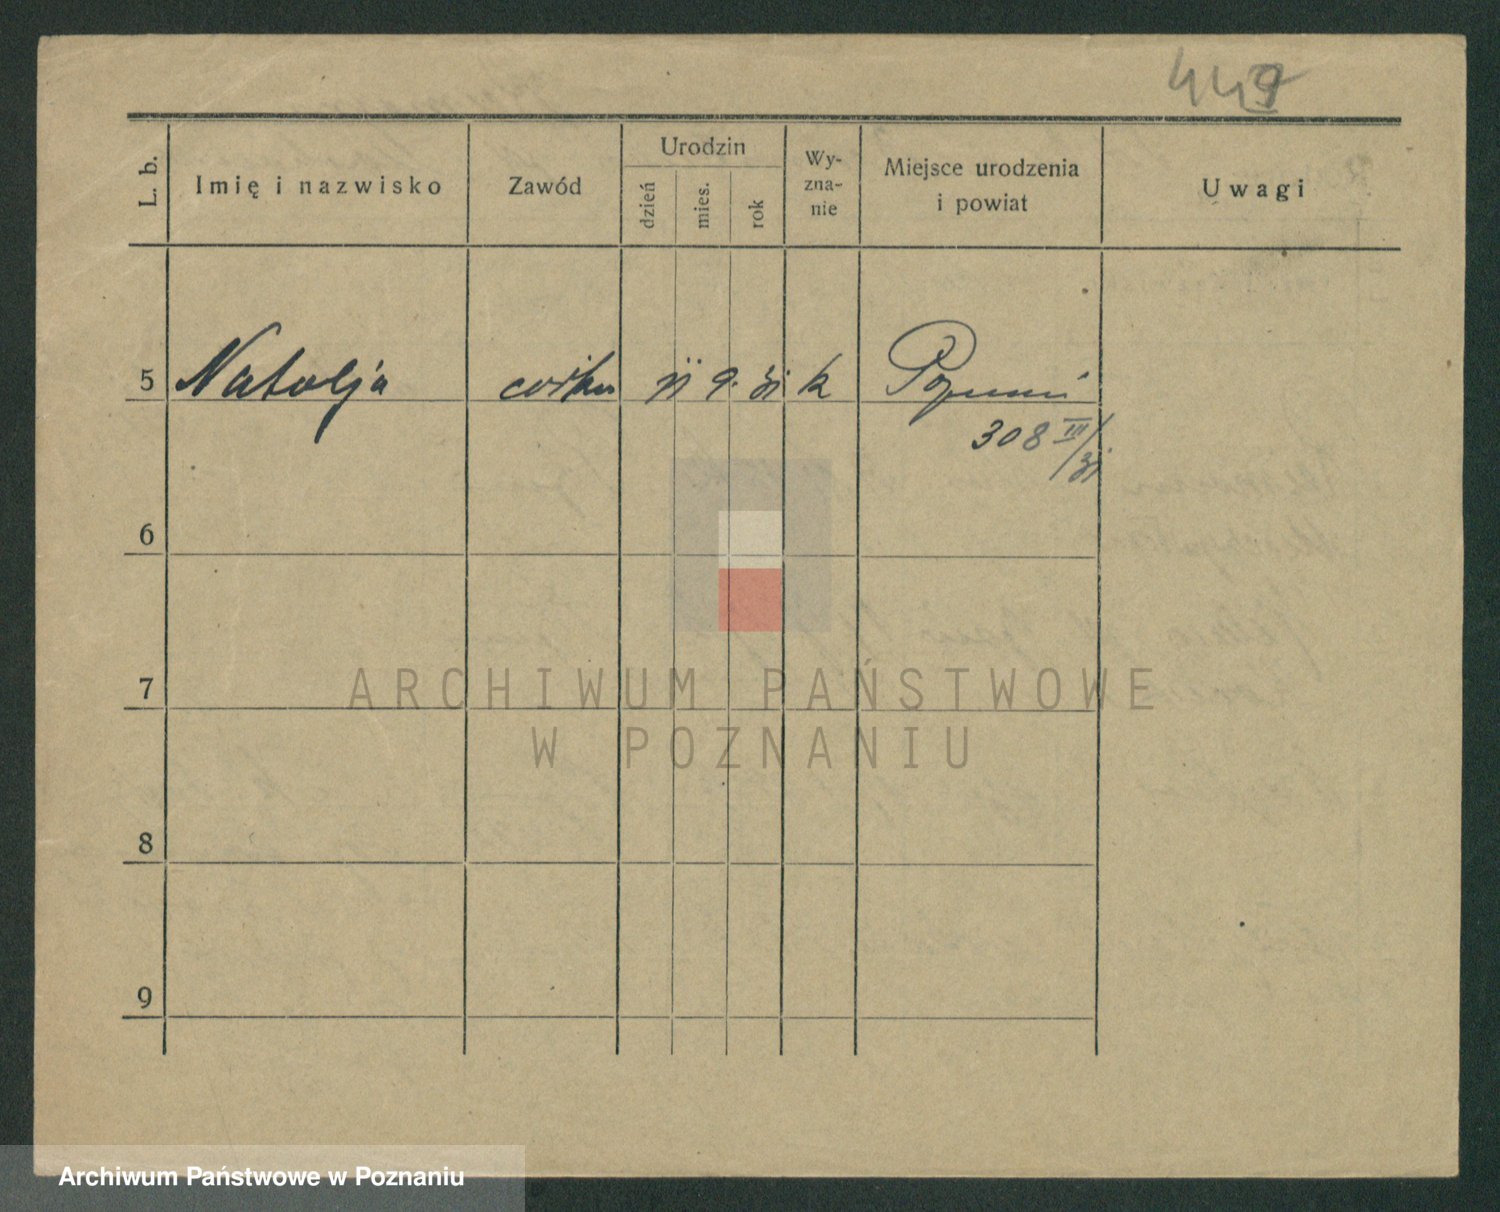 449
L. b. Imię i nazwisko Zawód Urodzin dzień mies. rok Wy-zna-nie Miejsce urodzenia i powiat Uwagi
5 Natalja córka 11 9. 31 k Poznań
308 III/31
6
7
8
9
ARCHIWUM PAŃSTWOWE
W POZNANIU
Archiwum Państwowe w Poznaniu